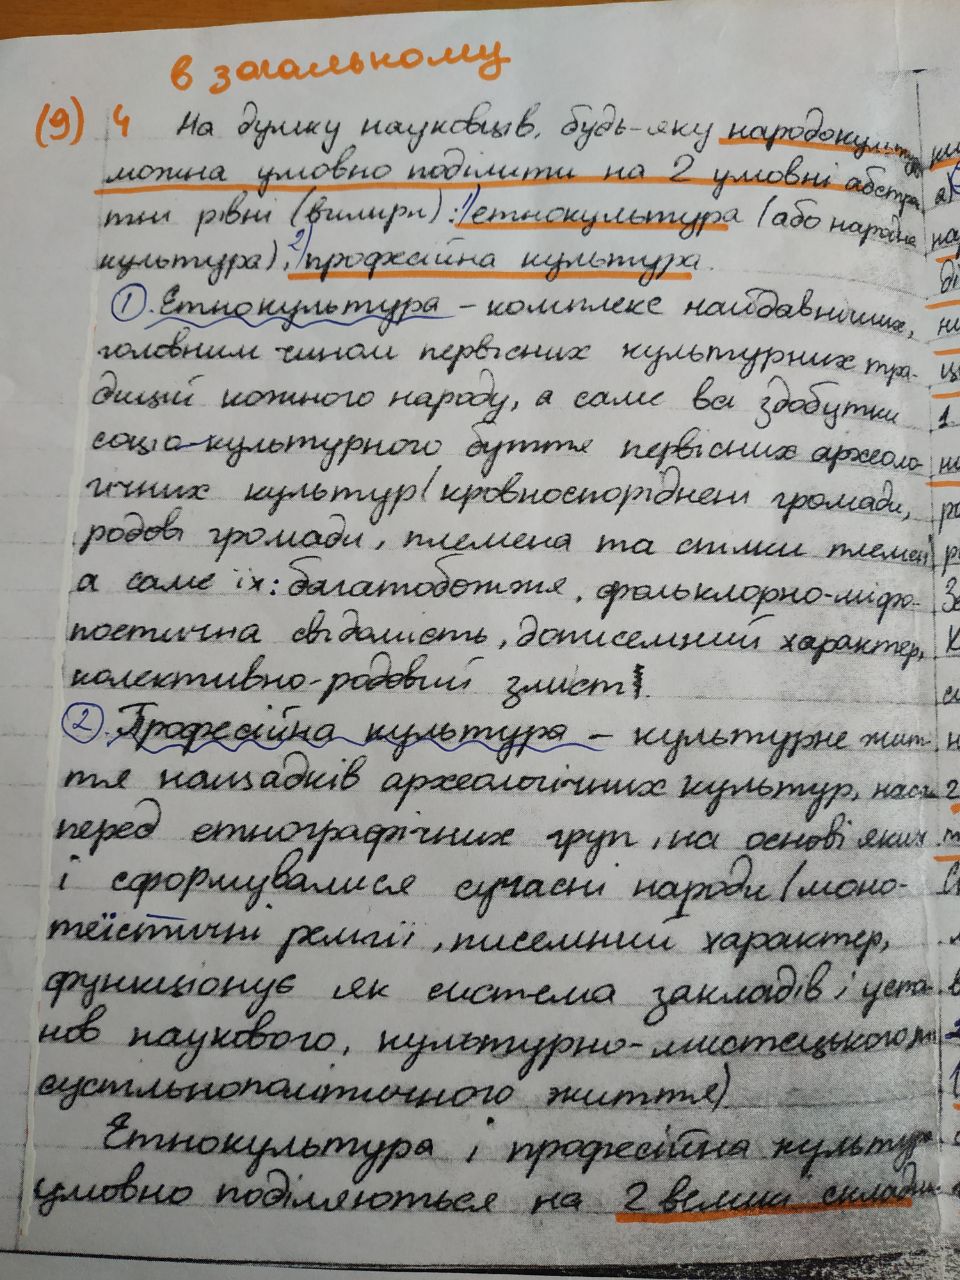 в загальному
(9) 4 На думку науковців, будь-яку народокультуру
можна умовно поділити на 2 умовні абстра
тні рівні (виміри): 1) етнокультура (або народна
культура), 2) професійна культура.
1. Етнокультура – комплекс найдавніших,
головним чином первісних культурних тра-
дицій кожного народу, а саме всі здобутки
соціо-культурного буття первісних археоло-
гічних культур (кровноспоріднені громади,
родові громади, племена та спілки племен)
а саме їх: багатобожжя, фольклорно-міфо-
поетична свідомість, дописемний характер,
колективно-родовий зміст.
2. Професійна культура – культурне жит
тя нащадків археологічних культур, насам
перед етнографічних груп, на основі яких
і сформувалися сучасні народи (моно-
теїстичні релігії, писемний характер,
функціонує як система закладів і уста-
нов наукового, культурно-мистецького та
суспільнополітичного життя)
Етнокультура і професійна культура
умовно поділяються на 2 великі склади